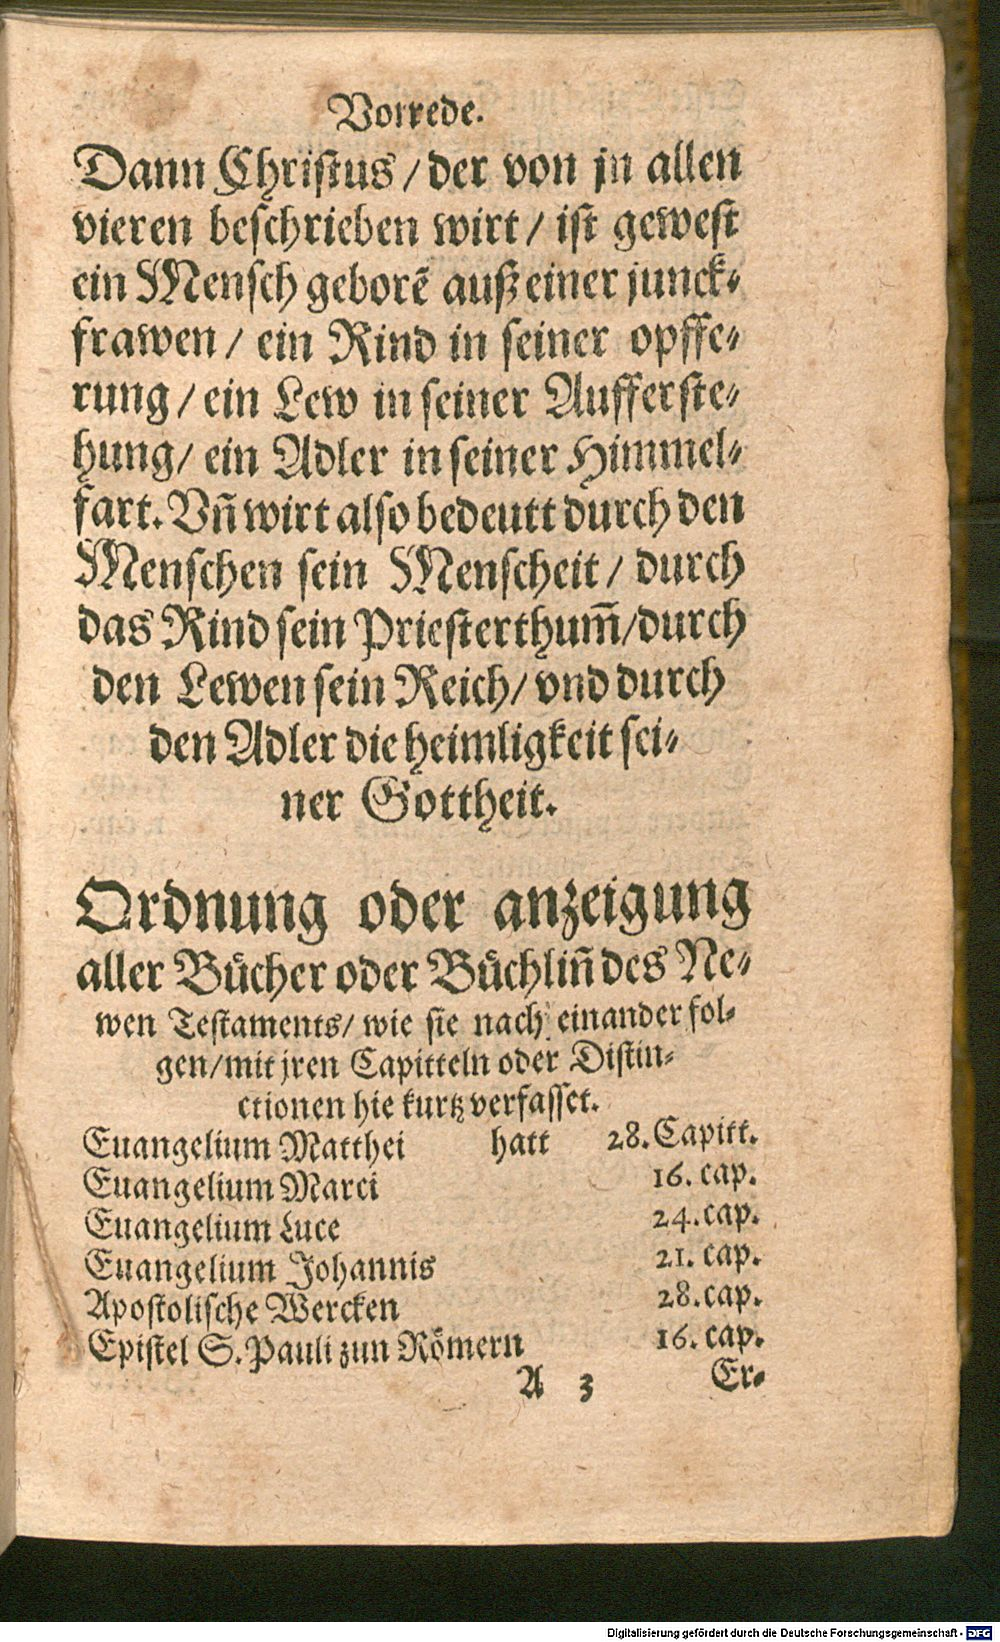 Vorrede.
Dann Christus / der von jn allen
vieren beschrieben wirt / ist gewest
ein Mensch geborẽ auß einer junck-
frawen / ein Rind in seiner opffe-
rung / ein Lew in seiner Aufferste-
hung / ein Adler in seiner Himmel-
fart. Vñ wirt also bedeutt durch den
Menschen sein Menscheit / durch
das Rind sein Priesterthum̃ / durch
den Lewen sein Reich / vnd durch
den Adler die heimligkeit sei-
ner Gottheit.
Ordnung oder anzeigung
aller Bücher oder Büchlin̄ des Ne-
wen Testaments / wie sie nach einander fol-
gen / mit jren Capitteln oder Distin-
ctionen hie kurtz verfasset.
Euangelium Matthei hatt 28. Capitt.
Euangelium Marci 16. cap.
Euangelium Luce 24. cap.
Euangelium Johannis 21. cap.
Apostolische Wercken 28. cap.
Epistel S. Pauli zun Römern 16. cap.
A 3 Er-
Digitalisierung gefördert durch die Deutsche Forschungsgemeinschaft - DFG